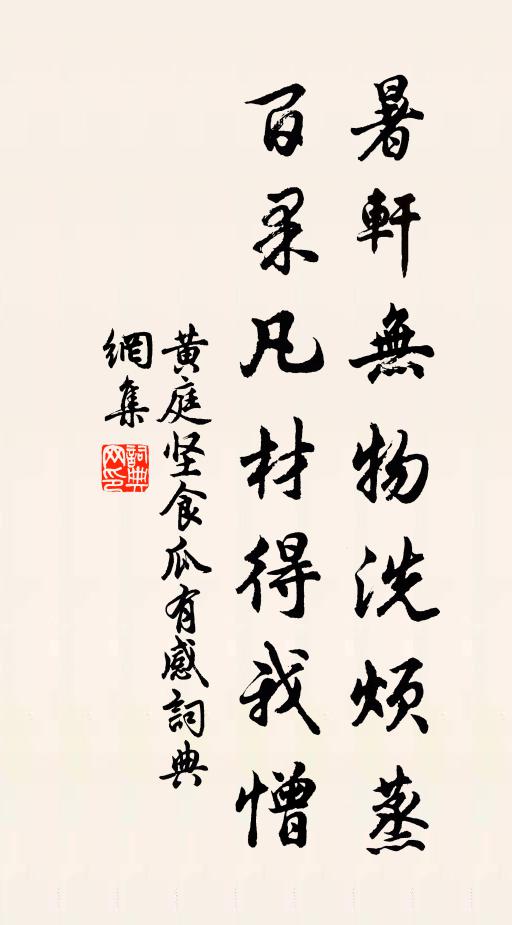 暑軒無物洗煩蒸
百果凡材得我憎
黄庭坚食瓜有感詞典
網集
詞典
网印